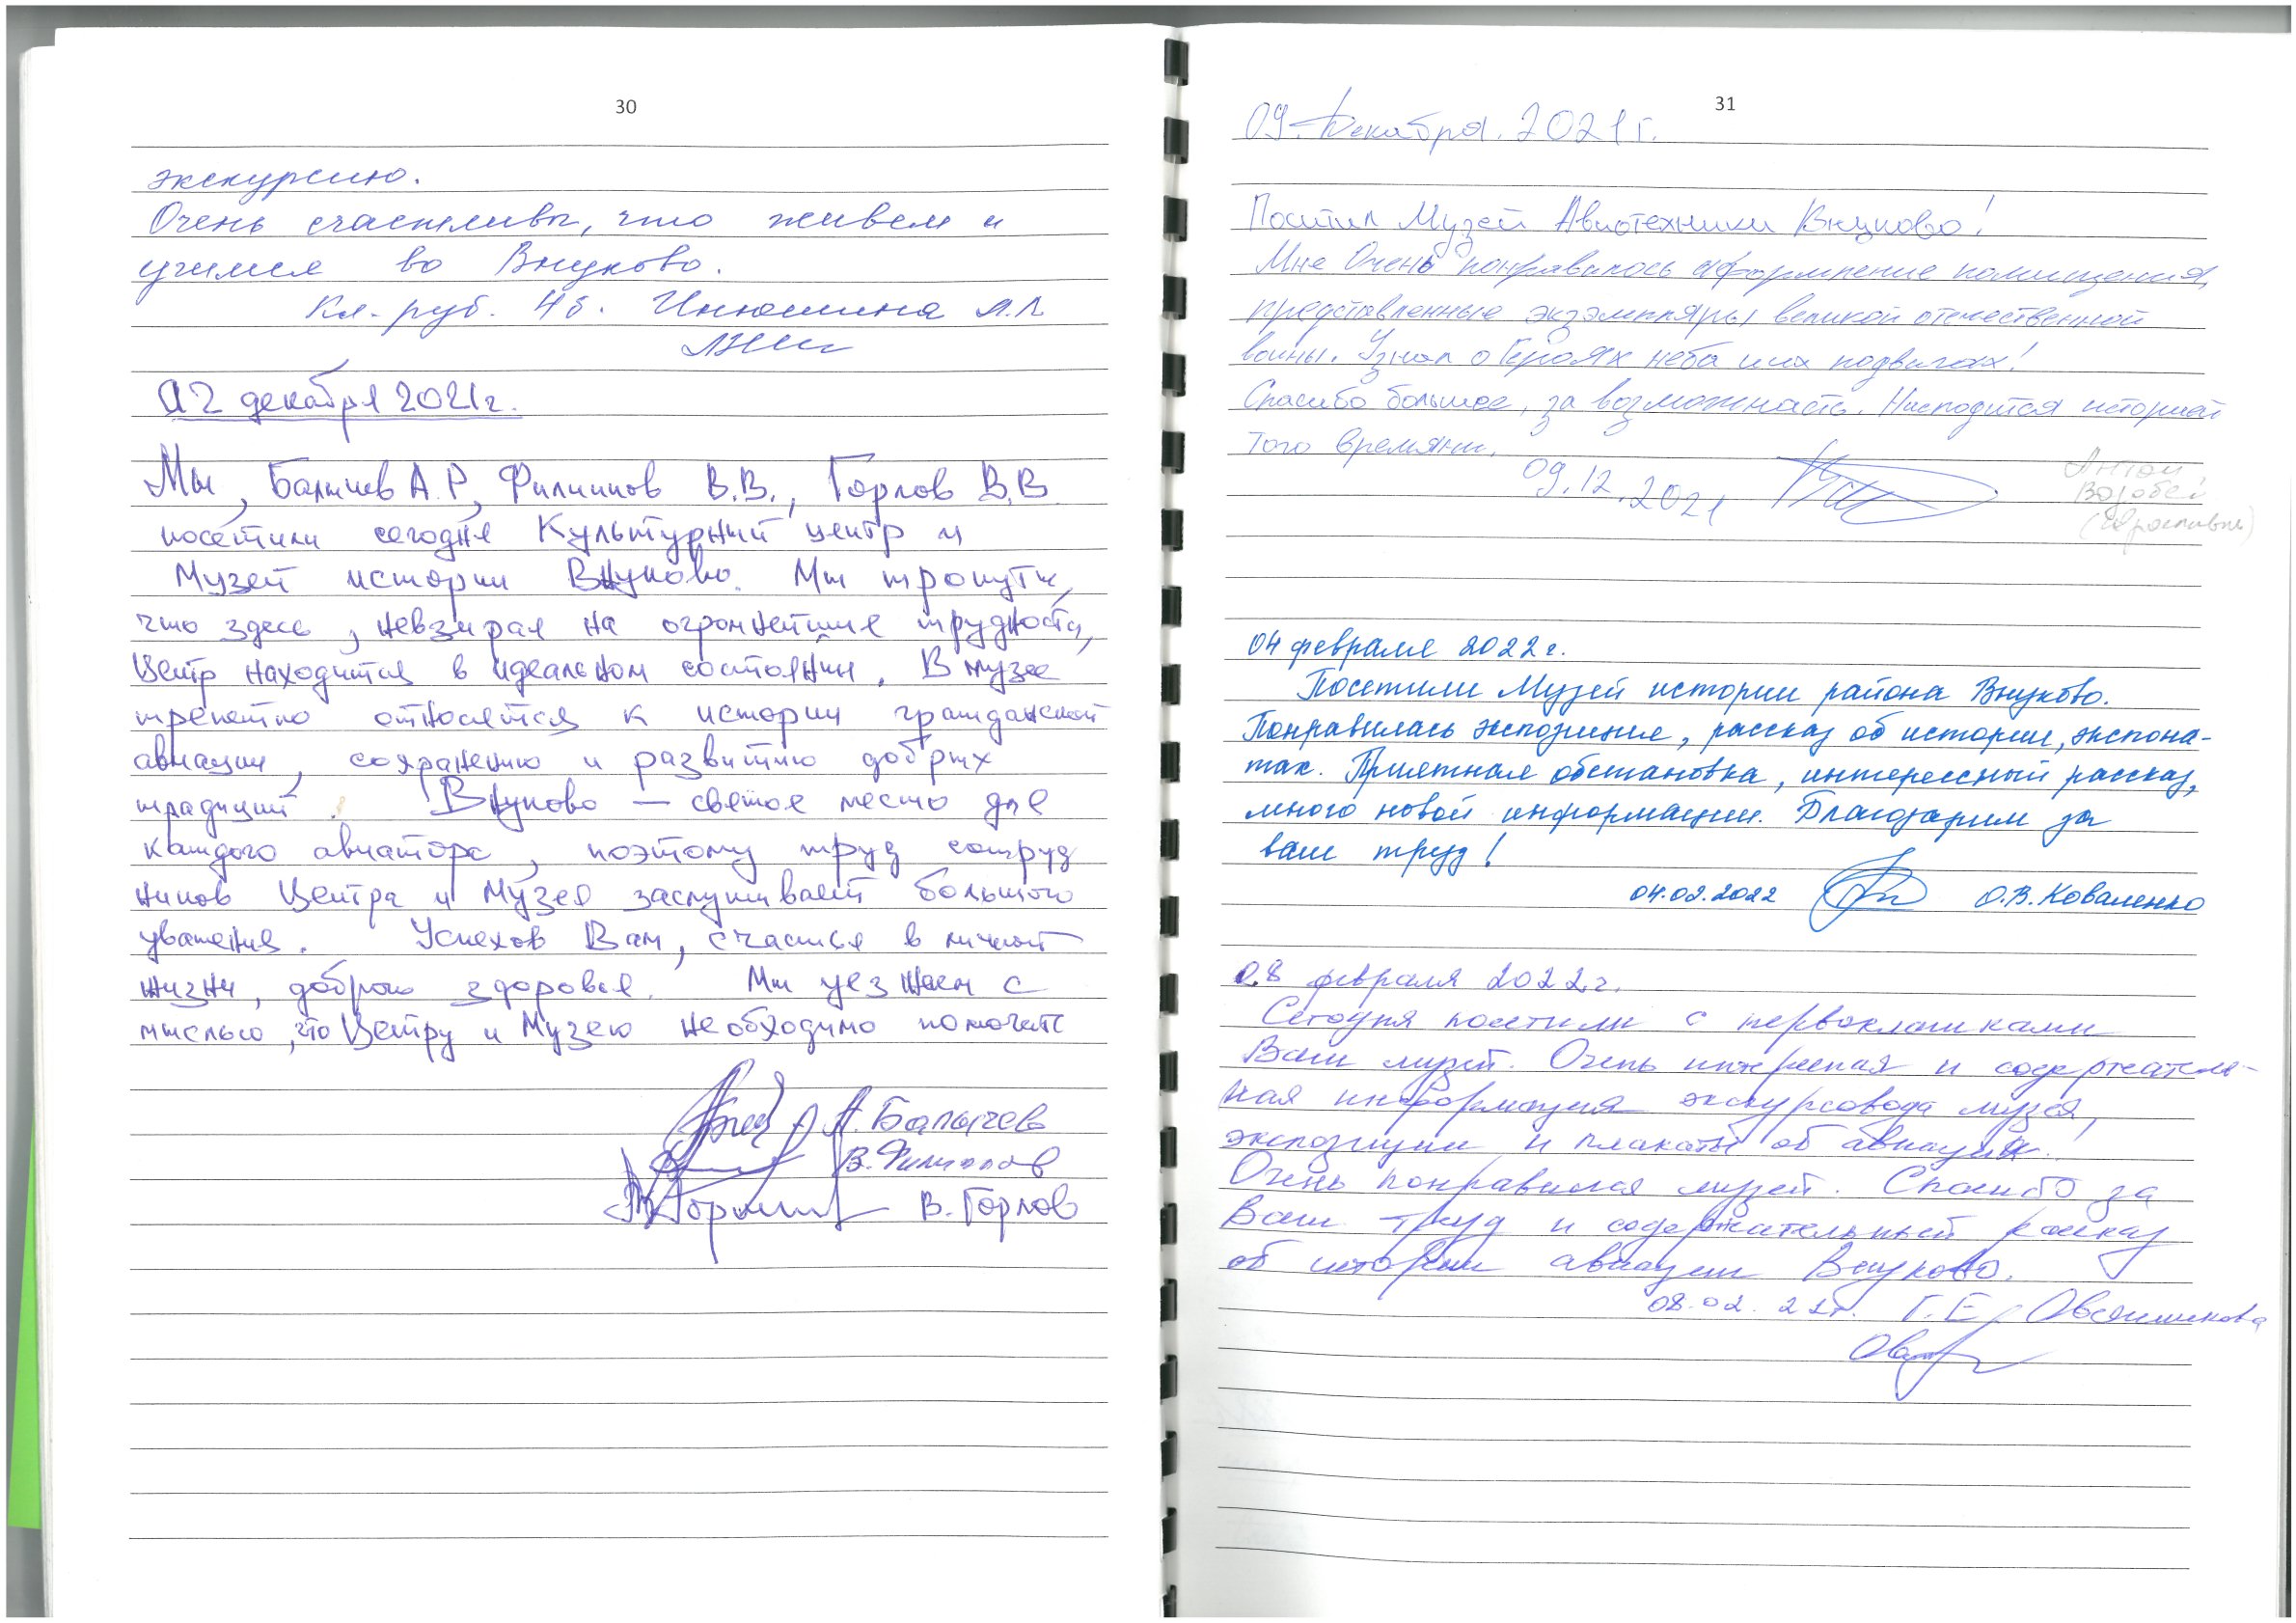 30
экскурсию.
Очень счастливы, что живем и
учимся во Внуково.
Кл. рук. 4б. Инюшина Л.Л
02 декабря 2021г.
Мы, Балычев А.Р, Филиппов В.В., Горлов В.В
посетили сегодня Культурный центр и
Музей истории Внуково. Мы тронуты,
что здесь, невзирая на огромнейшие трудности,
Центр находится в идеальном состоянии. В музее
трепетно относятся к истории гражданской
авиации, сохранению и развитию добрых
традиций. Внуково — святое место для
каждого авиатора, поэтому труд сотруд
ников Центра и Музея заслуживает большого
уважения. Успехов Вам, счастья в личной
жизни, доброго здоровья. Мы уезжаем с
мыслью, что Центру и Музею необходимо помогать
А. Балычев
В. Филиппов
В. Горлов
31
09. Декабря. 2021г.
Посетил Музей Авиотехники Внуково!
Мне Очень понравилось оформление помищения,
представленные экзэмпляры великой отечественной
войны. Узнал о Героях неба и их подвигах!
Спасибо большое, за возможность. Насладится историей
того времяни.
09.12.2021
Антон
Воробей
04 февраля 2022г.
Посетили Музей истории района Внуково.
Понравилась экспозиция, рассказ об истории, экспона-
тах. Приятная обстановка, интересный рассказ,
много новой информации. Благодарим за
ваш труд!
04.02.2022 О.В. Коваленко
08 февраля 2022г.
Сегодня посетили с первоклашками
Ваш музей. Очень интересная и содержатель-
ная информация экскурсовода музея,
экспозиции и плакаты об авиации!
Очень понравился музей. Спасибо за
Ваш труд и содержательный рассказ
об истории авиации Внуково.
08.02.22г. Г.Е. Овсянникова